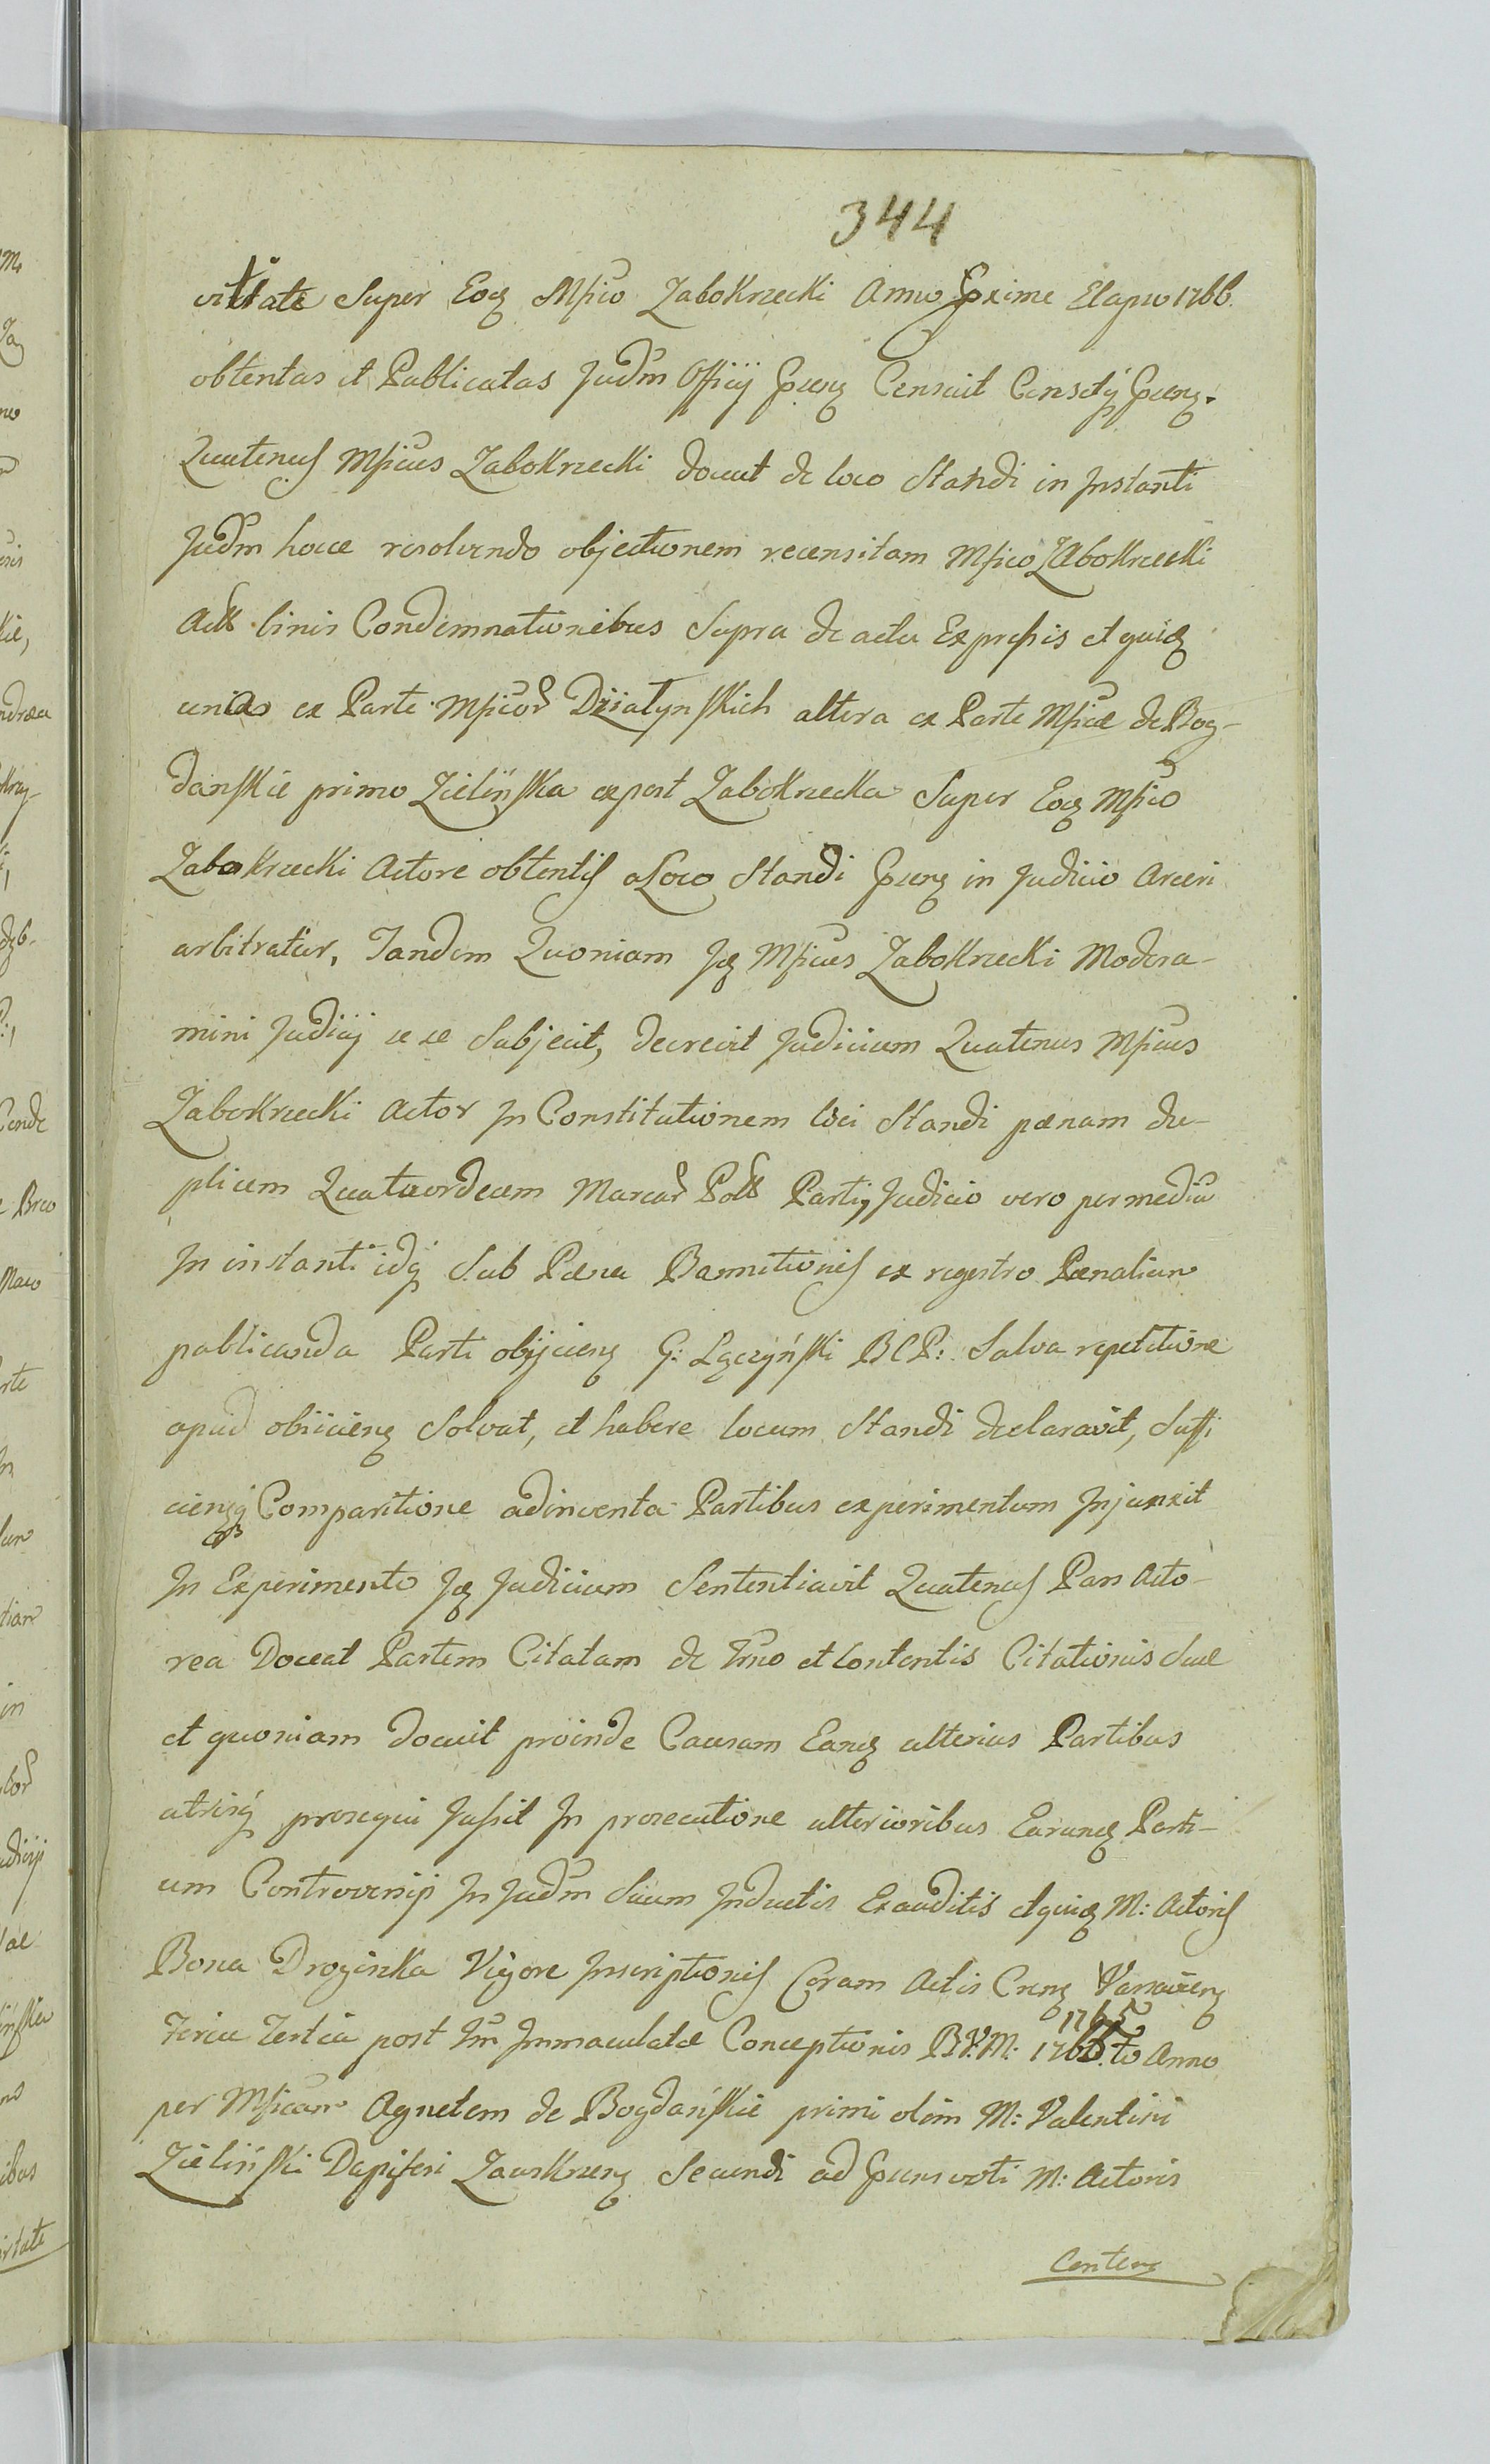 344
vitate Super Eoq Mfico Zabokrzecki Anno Pxime Elapso 1766.
obtentas et Publicatas Judm Officij Pnns Censuit Censetq Pnns.
Quatenus Mficus Zabokrzecki doceat de loco Standi in Instanti
Judm hocce resolvendo objectionem recensitam Mfico Zabokrzecki
Actt binis Condemnationibus Supra de actu Expressis et quidq
unius ex Parte Mficor Działynskich altera ex Parte Mficæ de Bog-
danskie primo Zielińska expost Zabokrzecka Super Eoq Mfico
Zabokrzecki Actore obtentis a Loco Standi Pnns in Judicio Arceri
arbitratur, Tandem Quoniam Iq Mficus Zabokrzecki Modera-
mini Judicij se se Subjecit, decrevit Judicium Quatenus Mficus
Zabokrzecki Actor In Constitutionem loci Standi pænam du-
plicem Quatuordecem Marcar Poll Parti, Judicio vero per mediu
In instanti idq Sub Pæna Bannitionis ex regestro Pænalium
publicanda Parti objiciens G: Łączyński BCP: Salva repetitione
apud obiiciens Solvat, et habere locum Standi declaravit, Suffi
ciensq Comparitione adinventa Partibus experimentum Injunxit
In Experimento Iq Judicium Sententiavit Quatenus Pars Acto-
rea Doceat Partem Citatam de Trno et Contentis Citationis Suæ
et quoniam docuit proinde Causam Eanq ulterius Partibus
utrisq prosequi Jussit In prosecutione ulterioribus Earunq Parti-
um Controversijs In Judm Suum Inductis Exauditis et quidq M: Actoris
Bona Droginka Vigore Inscriptionis Coram Actis Crens Varsaviens
1765
Feria Tertia post Ftm Immaculatæ Conceptionis B.V.M: 1765.to Anno
per Mficam Agnetem de Bogdańskie primi olim M: Valentini
Zieliński Dapiferi Zawskrzens Secundi ad Pnns voti M: Actoris
Contens